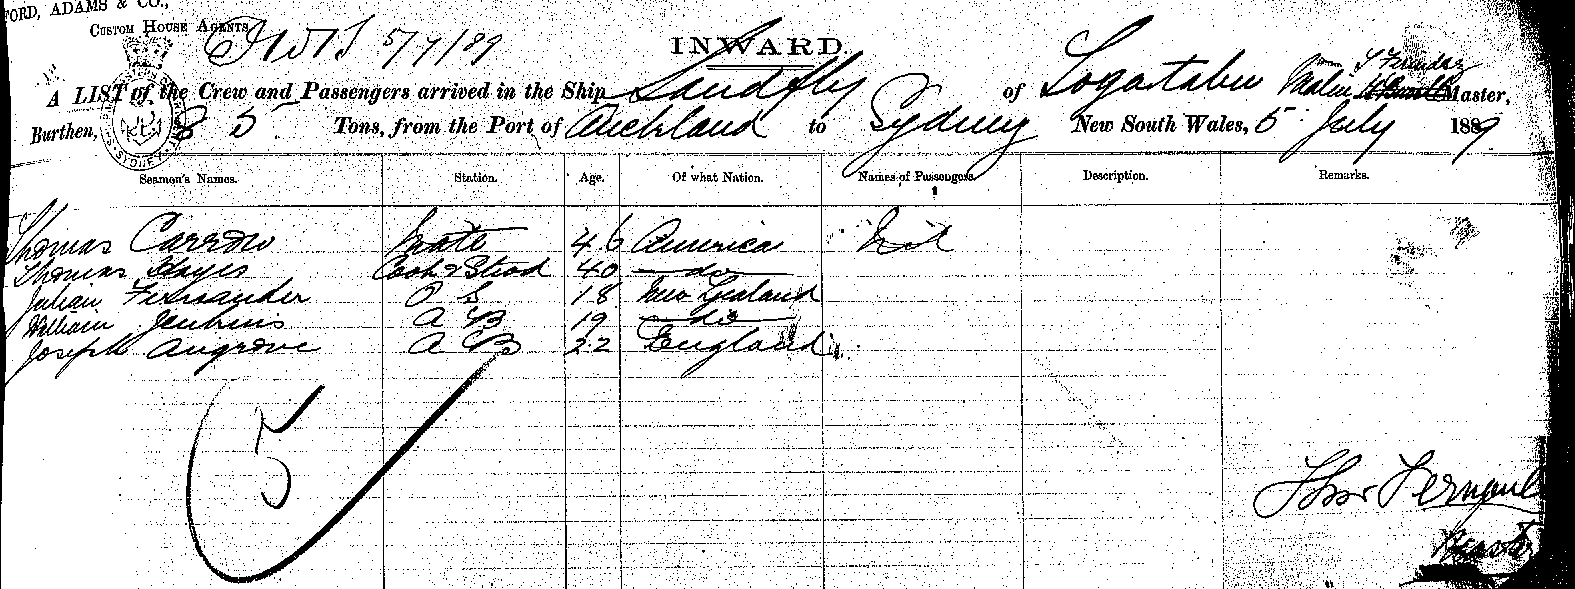 FORD, ADAMS & CO.,
CUSTOM HOUSE AGENTS
5/7/89
INWARD.
A LIST of the Crew and Passengers arrived in the Ship Sandfly of Logatabu Master,
Burthen, 85 Tons, from the Port of Auckland to Sydney New South Wales, 5 July 1889.
Seamen's Names. Station. Age. Of what Nation. Names of Passengers. Description. Remarks.
Thomas Carrow Mate 46 America Nil
Thomas Hayes Cook & Stwd 40 do
Julian Fernander O S 18 New Zealand
William Jenkins A B 19 do
Joseph Angrove A B 22 England
5
Thos
Master